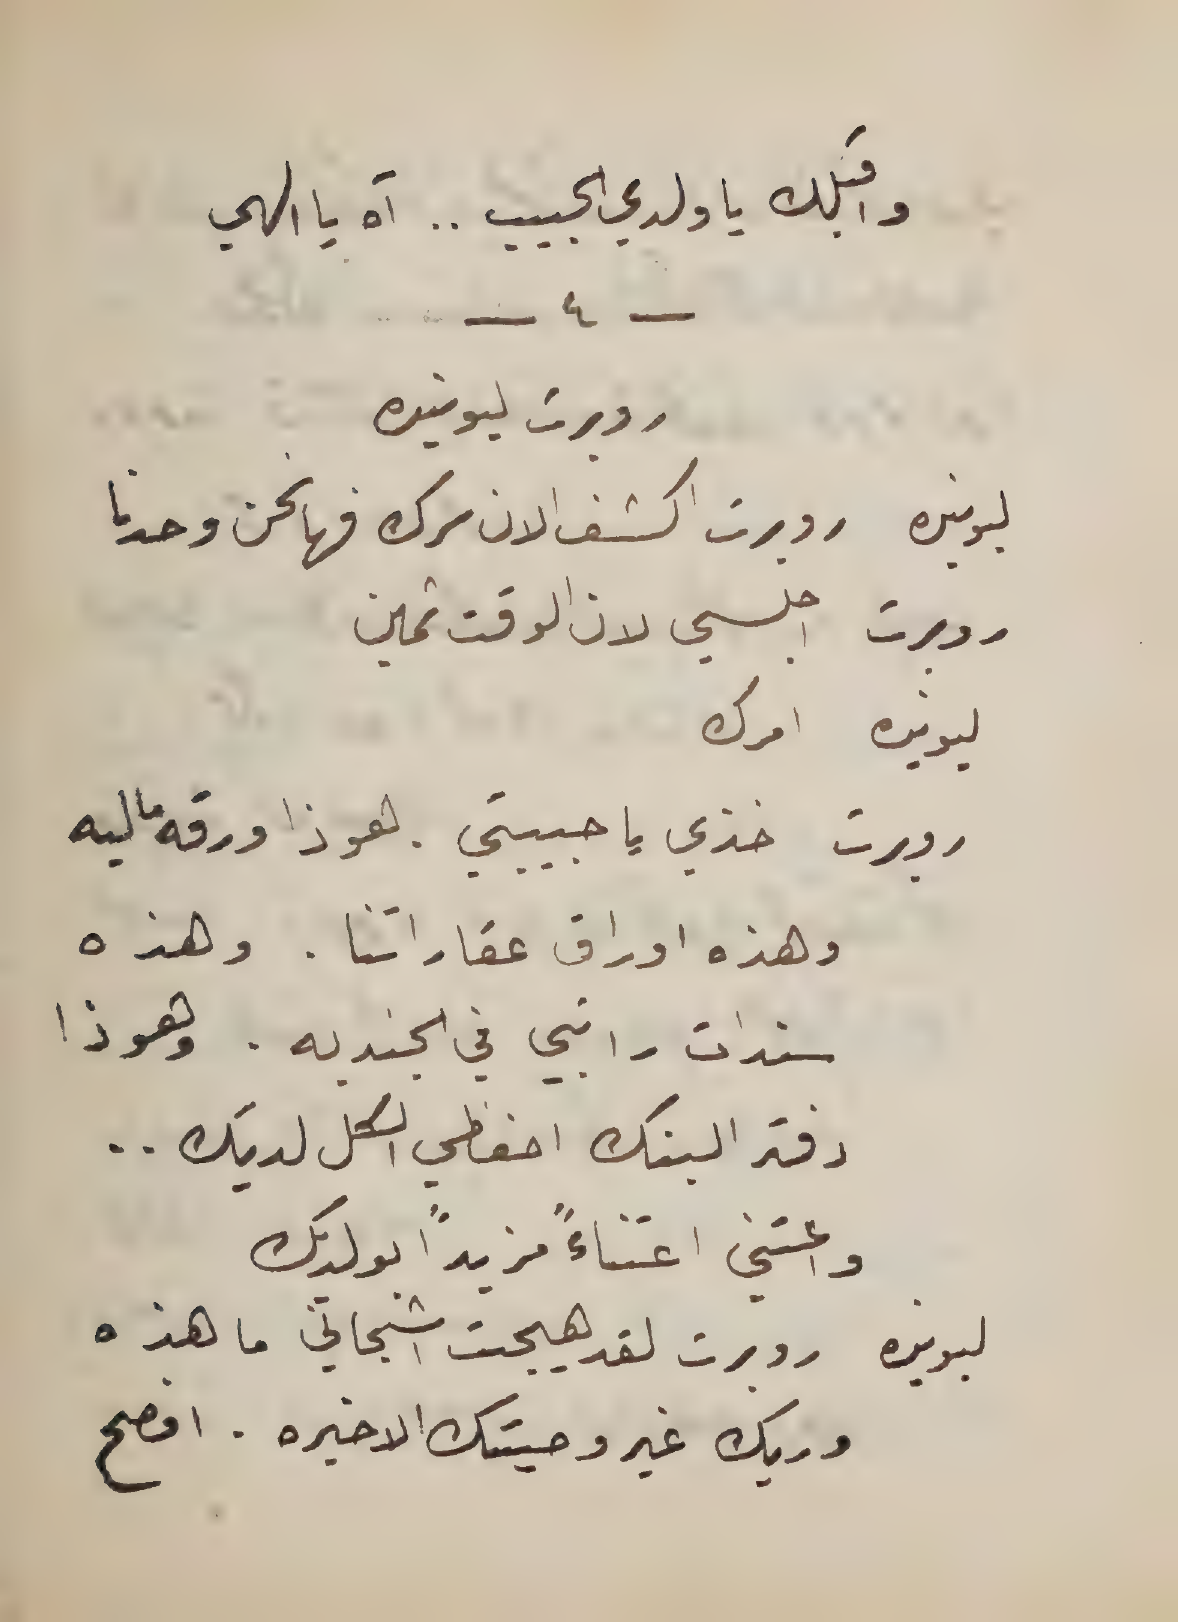 واقبلك يا ولدي الحبيب .. آه يا الهي
— ٤ —
روبرت ليونيده
ليونيده روبرت اكشف الان سرك فها نحن وحدنا
روبرت اجلسي لان الوقت ثمين
ليونيده امرك
روبرت خذي يا حبيبتي . هوذا ورقه ماليه
وهذه اوراق عقاراتنا . وهذه
سندات راتبي في الجنديه . وهوذا
دفتر البنك احفظي الكل لديك ..
واعتني اعتناءً مزيداً بولديك
ليونيده روبرت لقد هيجت اشجاني ما هذه
وربك غير وصيتك الاخيره . افصح